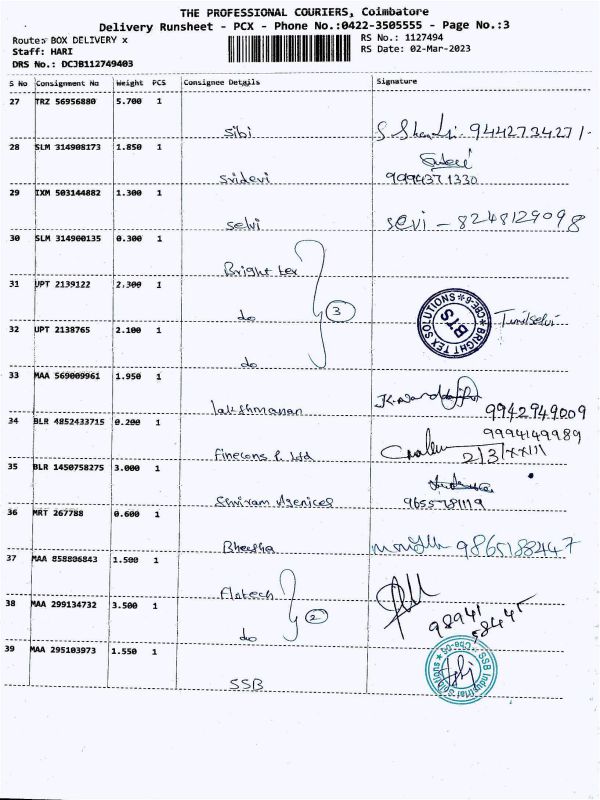 THE PROFESSIONAL COURIERS, Coimbatore
Delivery Runsheet - PCX - Phone No.:0422-3505555 - Page No.:3
Route: BOX DELIVERY x
RS No.: 1127494
Staff: HARI
RS Date: 02-Mar-2023
DRS No.: DCJB112749403
S No Consignment No Weight PCS Consignee Details Signature
27 TRZ 56956880 5.700 1
Sibi 9442734271-
28 SLM 314908173 1.850 1
Sridevi 9994371330
29 IXM 503144882 1.300 1
Selvi Selvi - 8248129098
30 SLM 314900135 0.300 1
Bright tex
31 UPT 2139122 2.300 1
do 3
BRIGHT TEX SOLUTIONS * CBE-6 *
BTS
Tamilselvi
32 UPT 2138765 2.100 1
do
33 MAA 569009961 1.950 1
lakshmanan 9942949009
34 BLR 4852433715 0.200 1
9994149989
Finecons P. Ltd 2/3/XXIII
35 BLR 1450758275 3.000 1
Shriram Agenices
36 MRT 267788 0.600 1
9865188447
37 MAA 858806843 1.500 1
Flotech
38 MAA 299134732 3.500 1
do 2
98941
58445
39 MAA 295103973 1.550 1
SSB
SSB Industrial